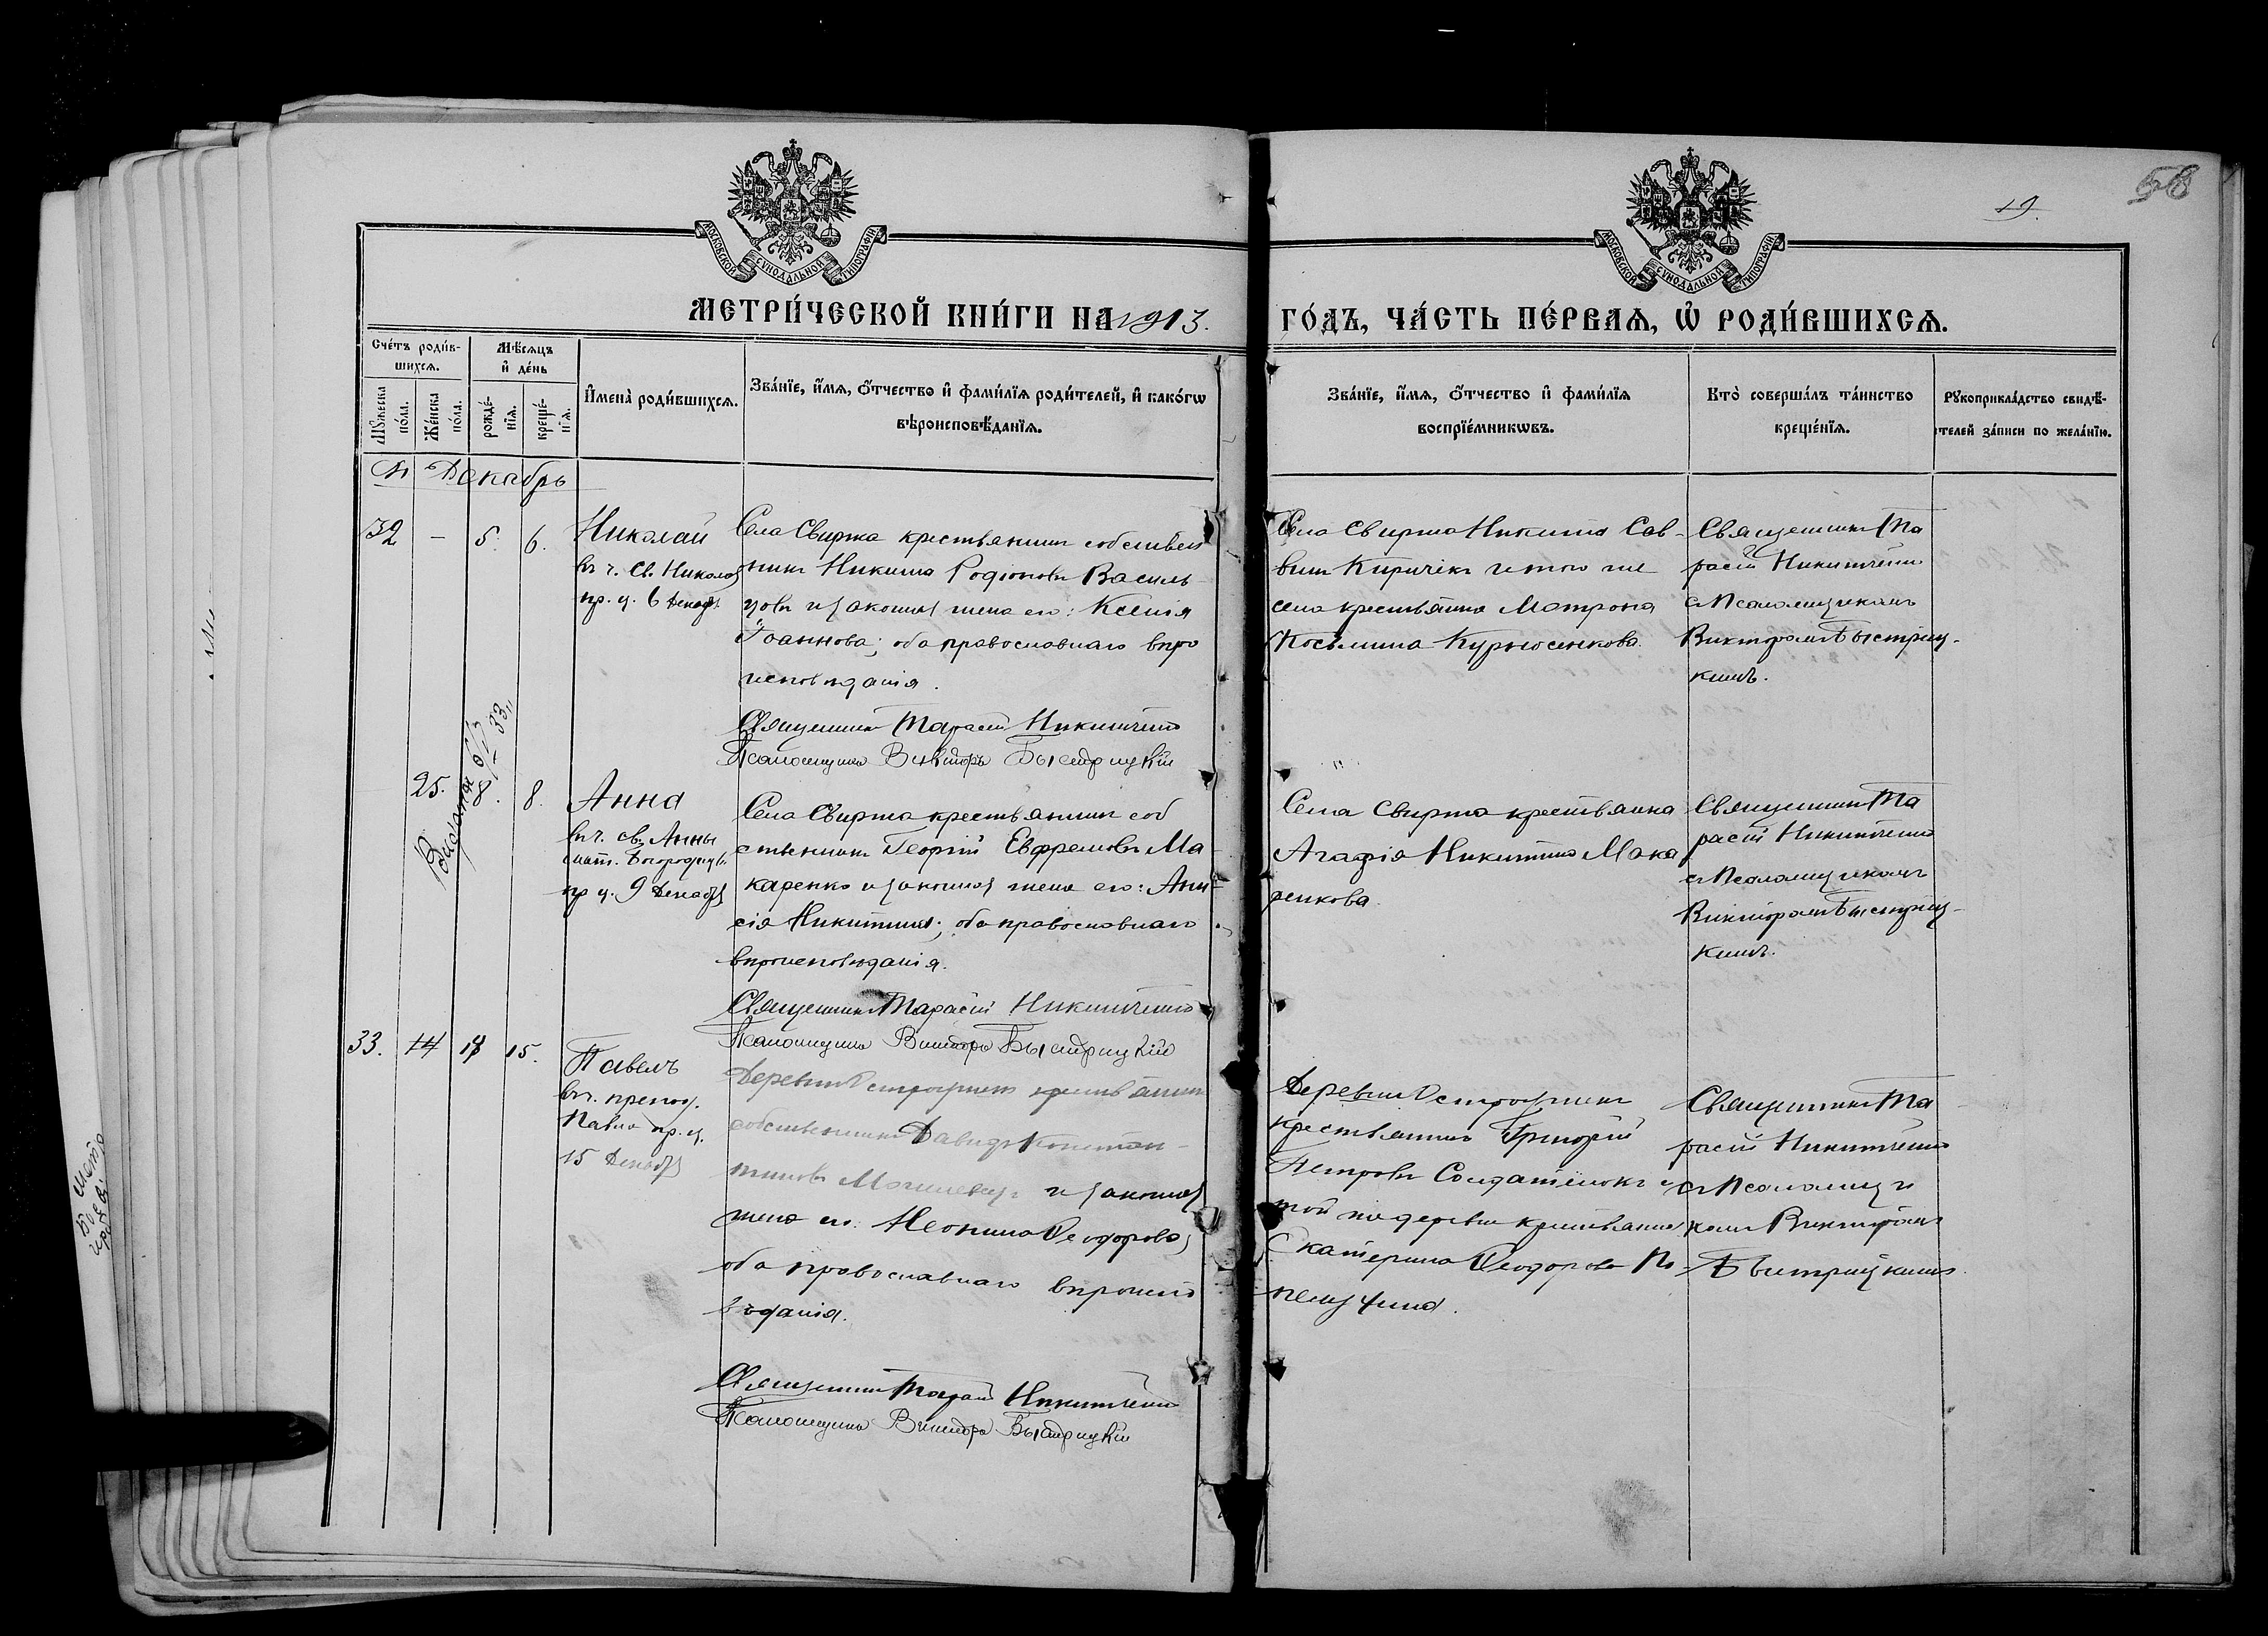 58
19.
МОСКОВСКОЙ СѴНОДАЛЬНОЙ ТИПОГРАФІИ
МОСКОВСКОЙ СѴНОДАЛЬНОЙ ТИПОГРАФІИ
МЕТРИ́ЧЕСКОЙ КНИ́ГИ НА 1913.
ГО́ДЪ, ЧА́СТЬ ПЕ́РВАѦ, Ѡ҆ РОДИ́ВШИХСѦ.
Сче́тъ роди́в-
шихсѧ.
Мꙋжеска по́ла.
Же́нска по́ла.
Мѣ́сѧцъ
и҆ де́нь
рожде́-
нїѧ.
креще́-
нїѧ.
И҆мена̀ роди́вшихсѧ.
Зва́нїе, и҆́мѧ, ѻ҆́тчество и҆ фами́лїѧ роди́телей, и҆ како́гѡ
вѣроисповѣ́данїѧ.
Зва́нїе, и҆́мѧ, ѻ҆́тчество и҆ фами́лїѧ
воспрїе́мникѡвъ.
Кто̀ соверша́лъ та́инство
креще́нїѧ.
Рꙋкоприкла́дство свидѣ́-
телей за́писи по жела́нїю.
Декабрь
32
–
5.
6.
Николай
въ ч. св. Николая
пр. ц. 6 Декабр.
Села Свиржа крестьянинъ собствен
никъ Никита Родіоновъ Василь
цовъ и законная жена его: Ксенія
Іоаннова; оба православнаго вѣро
исповѣданія.
Священникъ Тарасій Никитченко
Псаломщикъ Викторъ Быстрицкій
Села Свиржа Никита Сав-
винъ Киричекъ и того же
села крестьянка Матрона
Косьмина Курносенкова.
Священникъ Та
расій Никитченко
съ Псаломщикомъ
Викторомъ Быстриц-
кимъ.
25.
8.
8.
Выдана
8/ - 33
Анна
въ ч. св. Анны
мат. Богородицы
пр ц. 9 Декабря
Села Свиржа крестьянинъ соб
ственникъ Георгій Евфремовъ Ма
каренко и законная жена его: Ани-
сія Никитина; оба православнаго
вѣроисповѣданія.
Священникъ Тарасій Никитченко
Псаломщикъ Викторъ Быстрицкій
Села Свиржа крестьянка
Агафія Никитина Мака
ренкова.
Священникъ Та
расій Никитченко
съ Псаломщикомъ
Викторомъ Быстриц-
кимъ.
33.
14
15.
Павелъ
въ ч. препод.
Павла пр. ц.
15 Декабря
Деревни крестьянинъ
собственникъ Давидъ Констан-
тиновъ и законная
жена его: Неонила Ѳеодорова;
оба православнаго вѣроиспо
вѣданія.
Священникъ Тарасій Никитченко
Псаломщикъ Викторъ Быстрицкій
Деревни
крестьянинъ Григорій
Петровъ Солдатенокъ и
той же деревни крестьянка
Екатерина Ѳеодорова
Священникъ Та
расій Никитченко
съ Псаломщи
комъ Викторомъ
Быстрицкимъ.